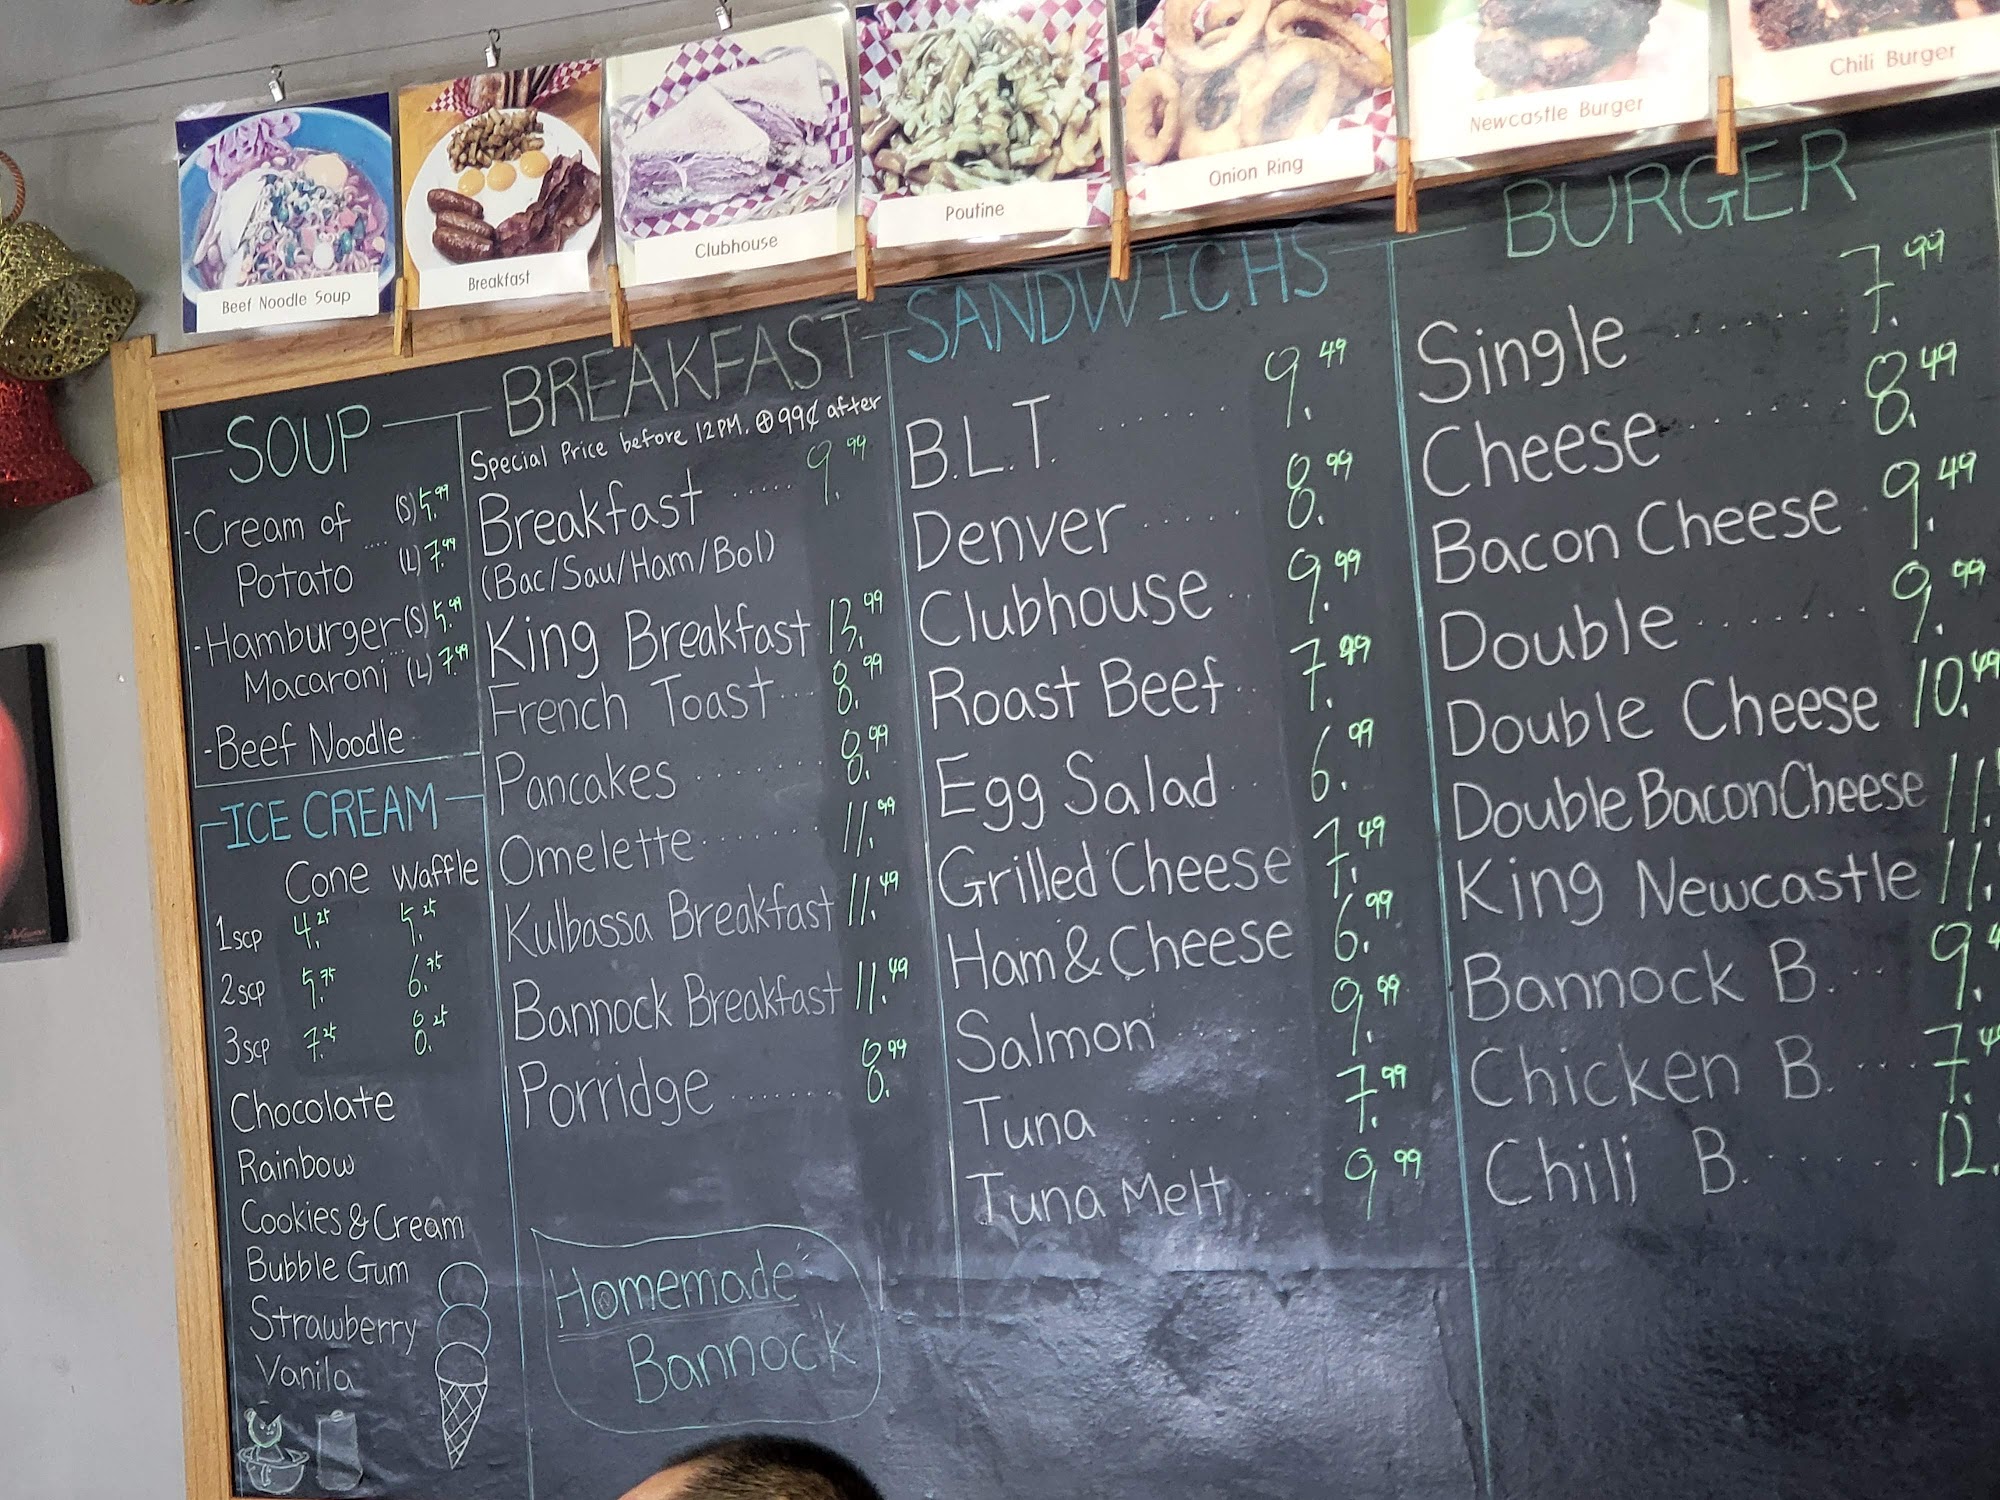 Beef Noodle Soup
Breakfast
Clubhouse
Poutine
Onion Ring
Newcastle Burger
Chili Burger
SOUP
-Cream of .... (S) 5.99
Potato (L) 7.49
-Hamburger (S) 5.49
Macaroni (L) 7.49
-Beef Noodle
ICE CREAM
Cone Waffle
1scp 4.25 5.25
2scp 5.75 6.75
3scp 7.25 8.25
Chocolate
Rainbow
Cookies & Cream
Bubble Gum
Strawberry
Vanila
BREAKFAST
Special Price before 12PM. ⊕ 99¢ after
Breakfast ..... 9.99
(Bac/Sau/Ham/Bol)
King Breakfast 13.99
French Toast... 8.99
Pancakes ........ 8.99
Omelette ........ 11.99
Kulbassa Breakfast 11.49
Bannock Breakfast 11.49
Porridge ....... 8.99
Homemade
Bannock
SANDWICHS
B.L.T. ...... 9.49
Denver ...... 8.99
Clubhouse .. 9.99
Roast Beef .. 7.99
Egg Salad .. 6.99
Grilled Cheese 7.49
Ham & Cheese 6.99
Salmon ...... 9.99
Tuna ...... 7.99
Tuna Melt .... 9.99
BURGER
Single ...... 7.99
Cheese ...... 8.49
Bacon Cheese . 9.49
Double ...... 9.99
Double Cheese 10.49
Double Bacon Cheese 11.
King Newcastle 11.
Bannock B. .. 9.4
Chicken B. ... 7.4
Chili B. ...... 12.